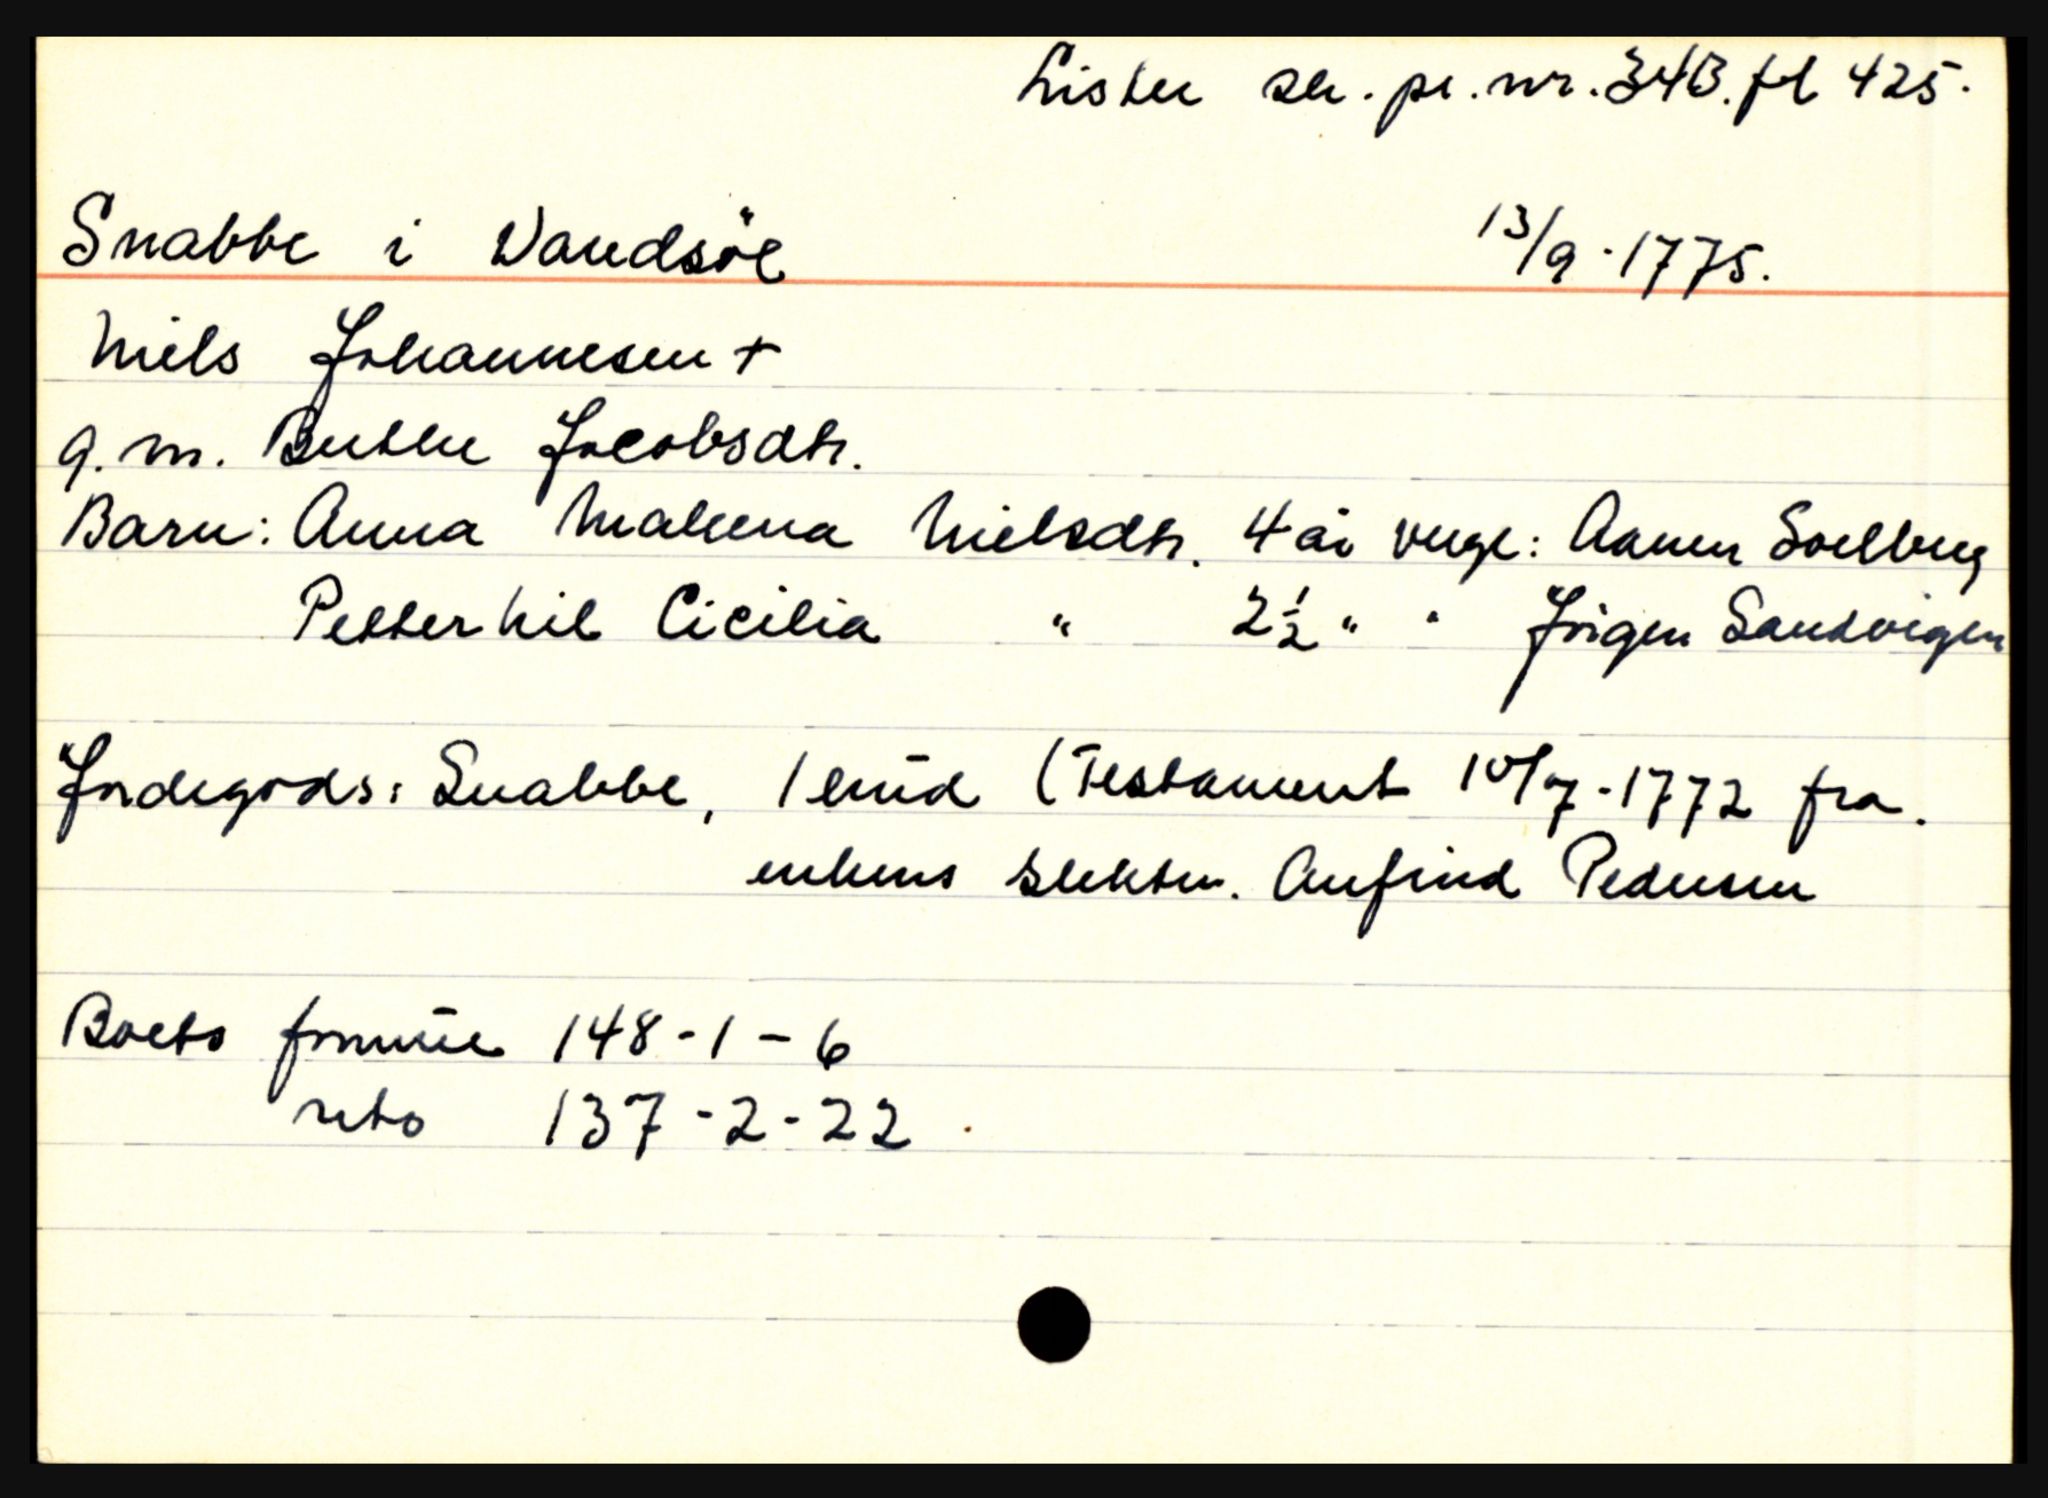 Lister sk. pr. nr. 34B. fol 425.
Snabbe i Vandsöe 13/9-1775.
Niels Johannesen +
g. m. Berthe Jacobsdtr.
Barn: Anna Malena Nielsdtr. 4 år verge: Aanen Soelberg
Petternil Cicilia " 2½ " " Jörgen Sandvigen
Jordegods: Snabbe, 1 huud (Testament 10/7-1772 fra
enkens slektn. Anfind Pedersen
Boets formue 148-1-6
neto 137-2-22